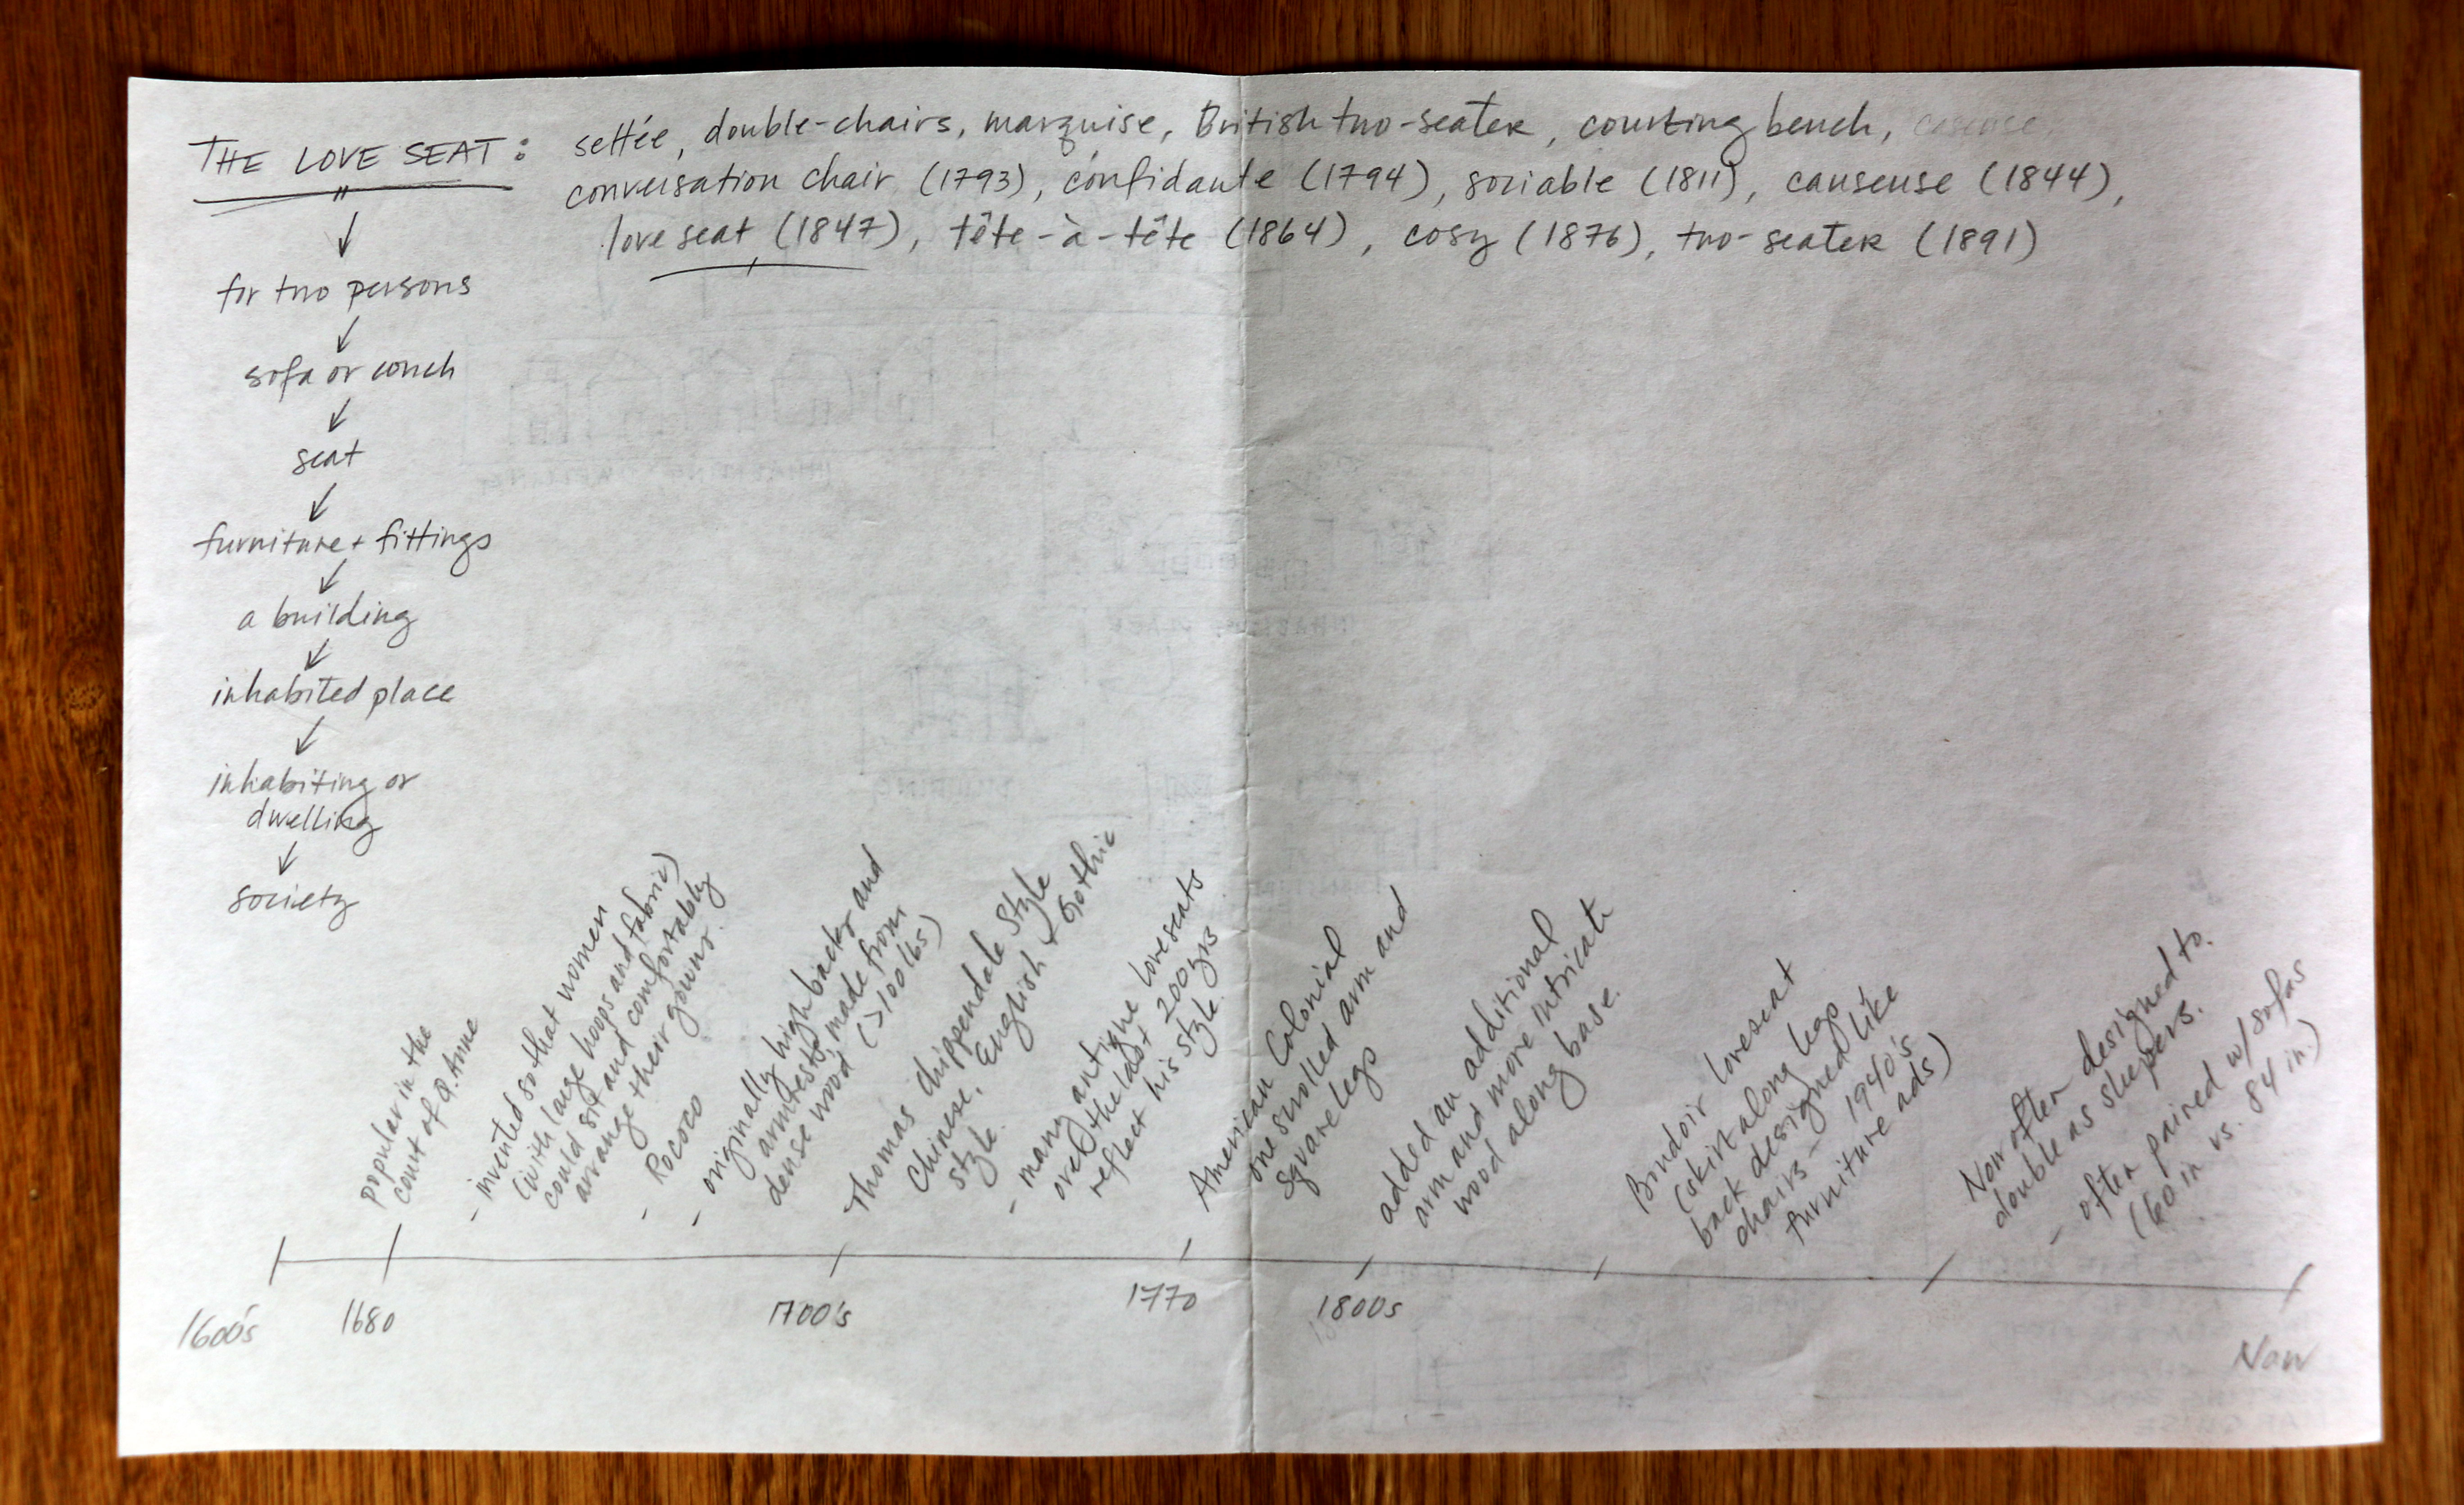 THE LOVE SEAT: settée, double-chairs, marquise, British two-seater, courting bench,
conversation chair (1793), confidante (1794), sociable (1811), causeuse (1844),
love seat (1847), tête-à-tête (1864), cosy (1876), two-seater (1891)
for two persons
sofa or couch
seat
furniture + fittings
a building
inhabited place
inhabiting or
dwelling
society
popular in the
court of Q. Anne
- invented so that women
(with large hoops and fabric)
could sit and comfortably
arrange their gowns.
- Rococo
- originally high backs and
armrests, made from
dense wood (>100 lbs)
Thomas Chippendale Style
Chinese, English + Gothic
style.
- many antique loveseats
over the last 200 yrs
reflect his style.
American Colonial
one scrolled arm and
square legs
added an additional
arm and more intricate
wood along base.
Boudoir loveseat
(skirt along legs
back designed like
chairs - 1940's
furniture ads)
Now often designed to
double as sleepers.
- often paired w/ sofas
(60 in vs. 84 in.)
1600's
1680
1700's
1770
1800s
Now